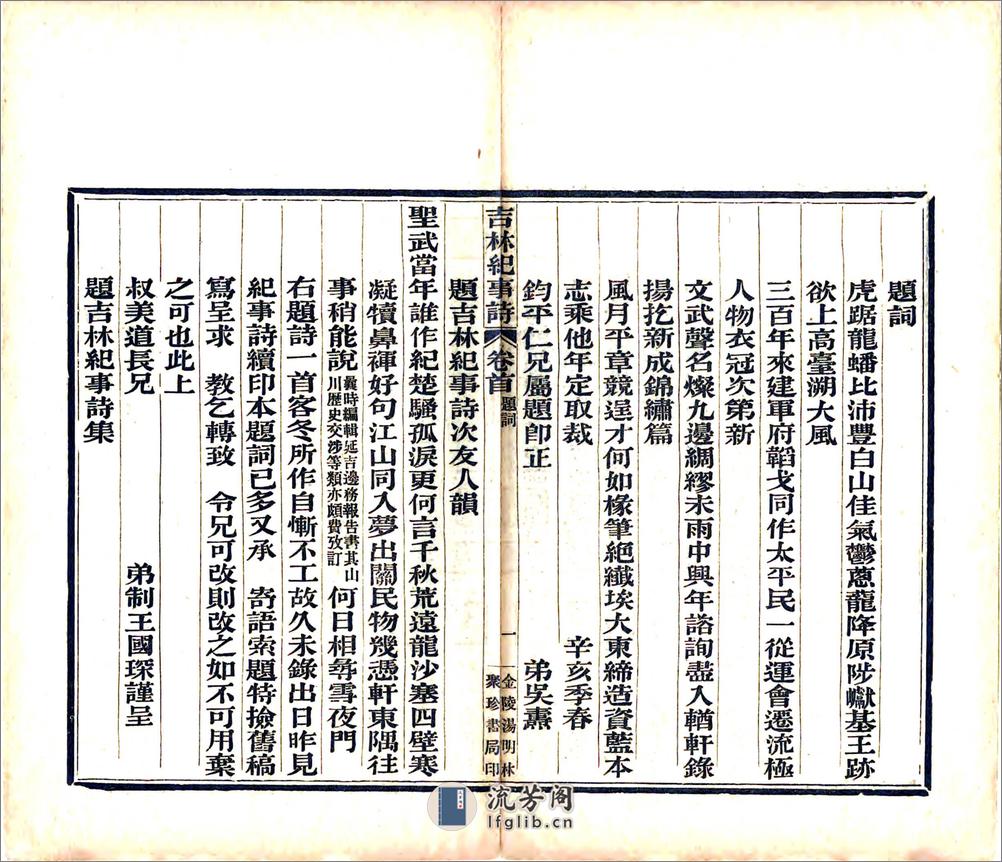 題詞
虎踞龍蟠比沛豐白山佳氣鬱蔥蘢降原陟巘基王跡
欲上高臺溯大風
三百年來建軍府韜戈同作太平民一從運會遷流極
人物衣冠次第新
文武聲名燦九邊綢繆未雨中興年諮詢盡入輶軒錄
揚扢新成錦繡篇
風月平章競逞才何如椽筆絕纖埃大東締造資藍本
志乘他年定取裁 辛亥季春
鈞平仁兄屬題卽正 弟吳燾
吉林紀事詩 卷首 題詞 一 金陵湯明林聚珍書局印
題吉林紀事詩次友人韻
聖武當年誰作紀楚騷孤淚更何言千秋荒遠龍沙塞四壁寒
凝犢鼻褌好句江山同入夢出關民物幾憑軒東隅往
事稍能說曩時編輯延吉邊務報告書其山川歷史交涉等類亦頗費攷訂何日相尋雪夜門
右題詩一首客冬所作自慚不工故久未錄出日昨見
紀事詩續印本題詞已多又承 寄語索題特撿舊稿
寫呈求 教乞轉致 令兄可改則改之如不可用棄
之可也此上
叔美道長兄 弟制王國琛謹呈
題吉林紀事詩集
流芳阁
lfglib.cn